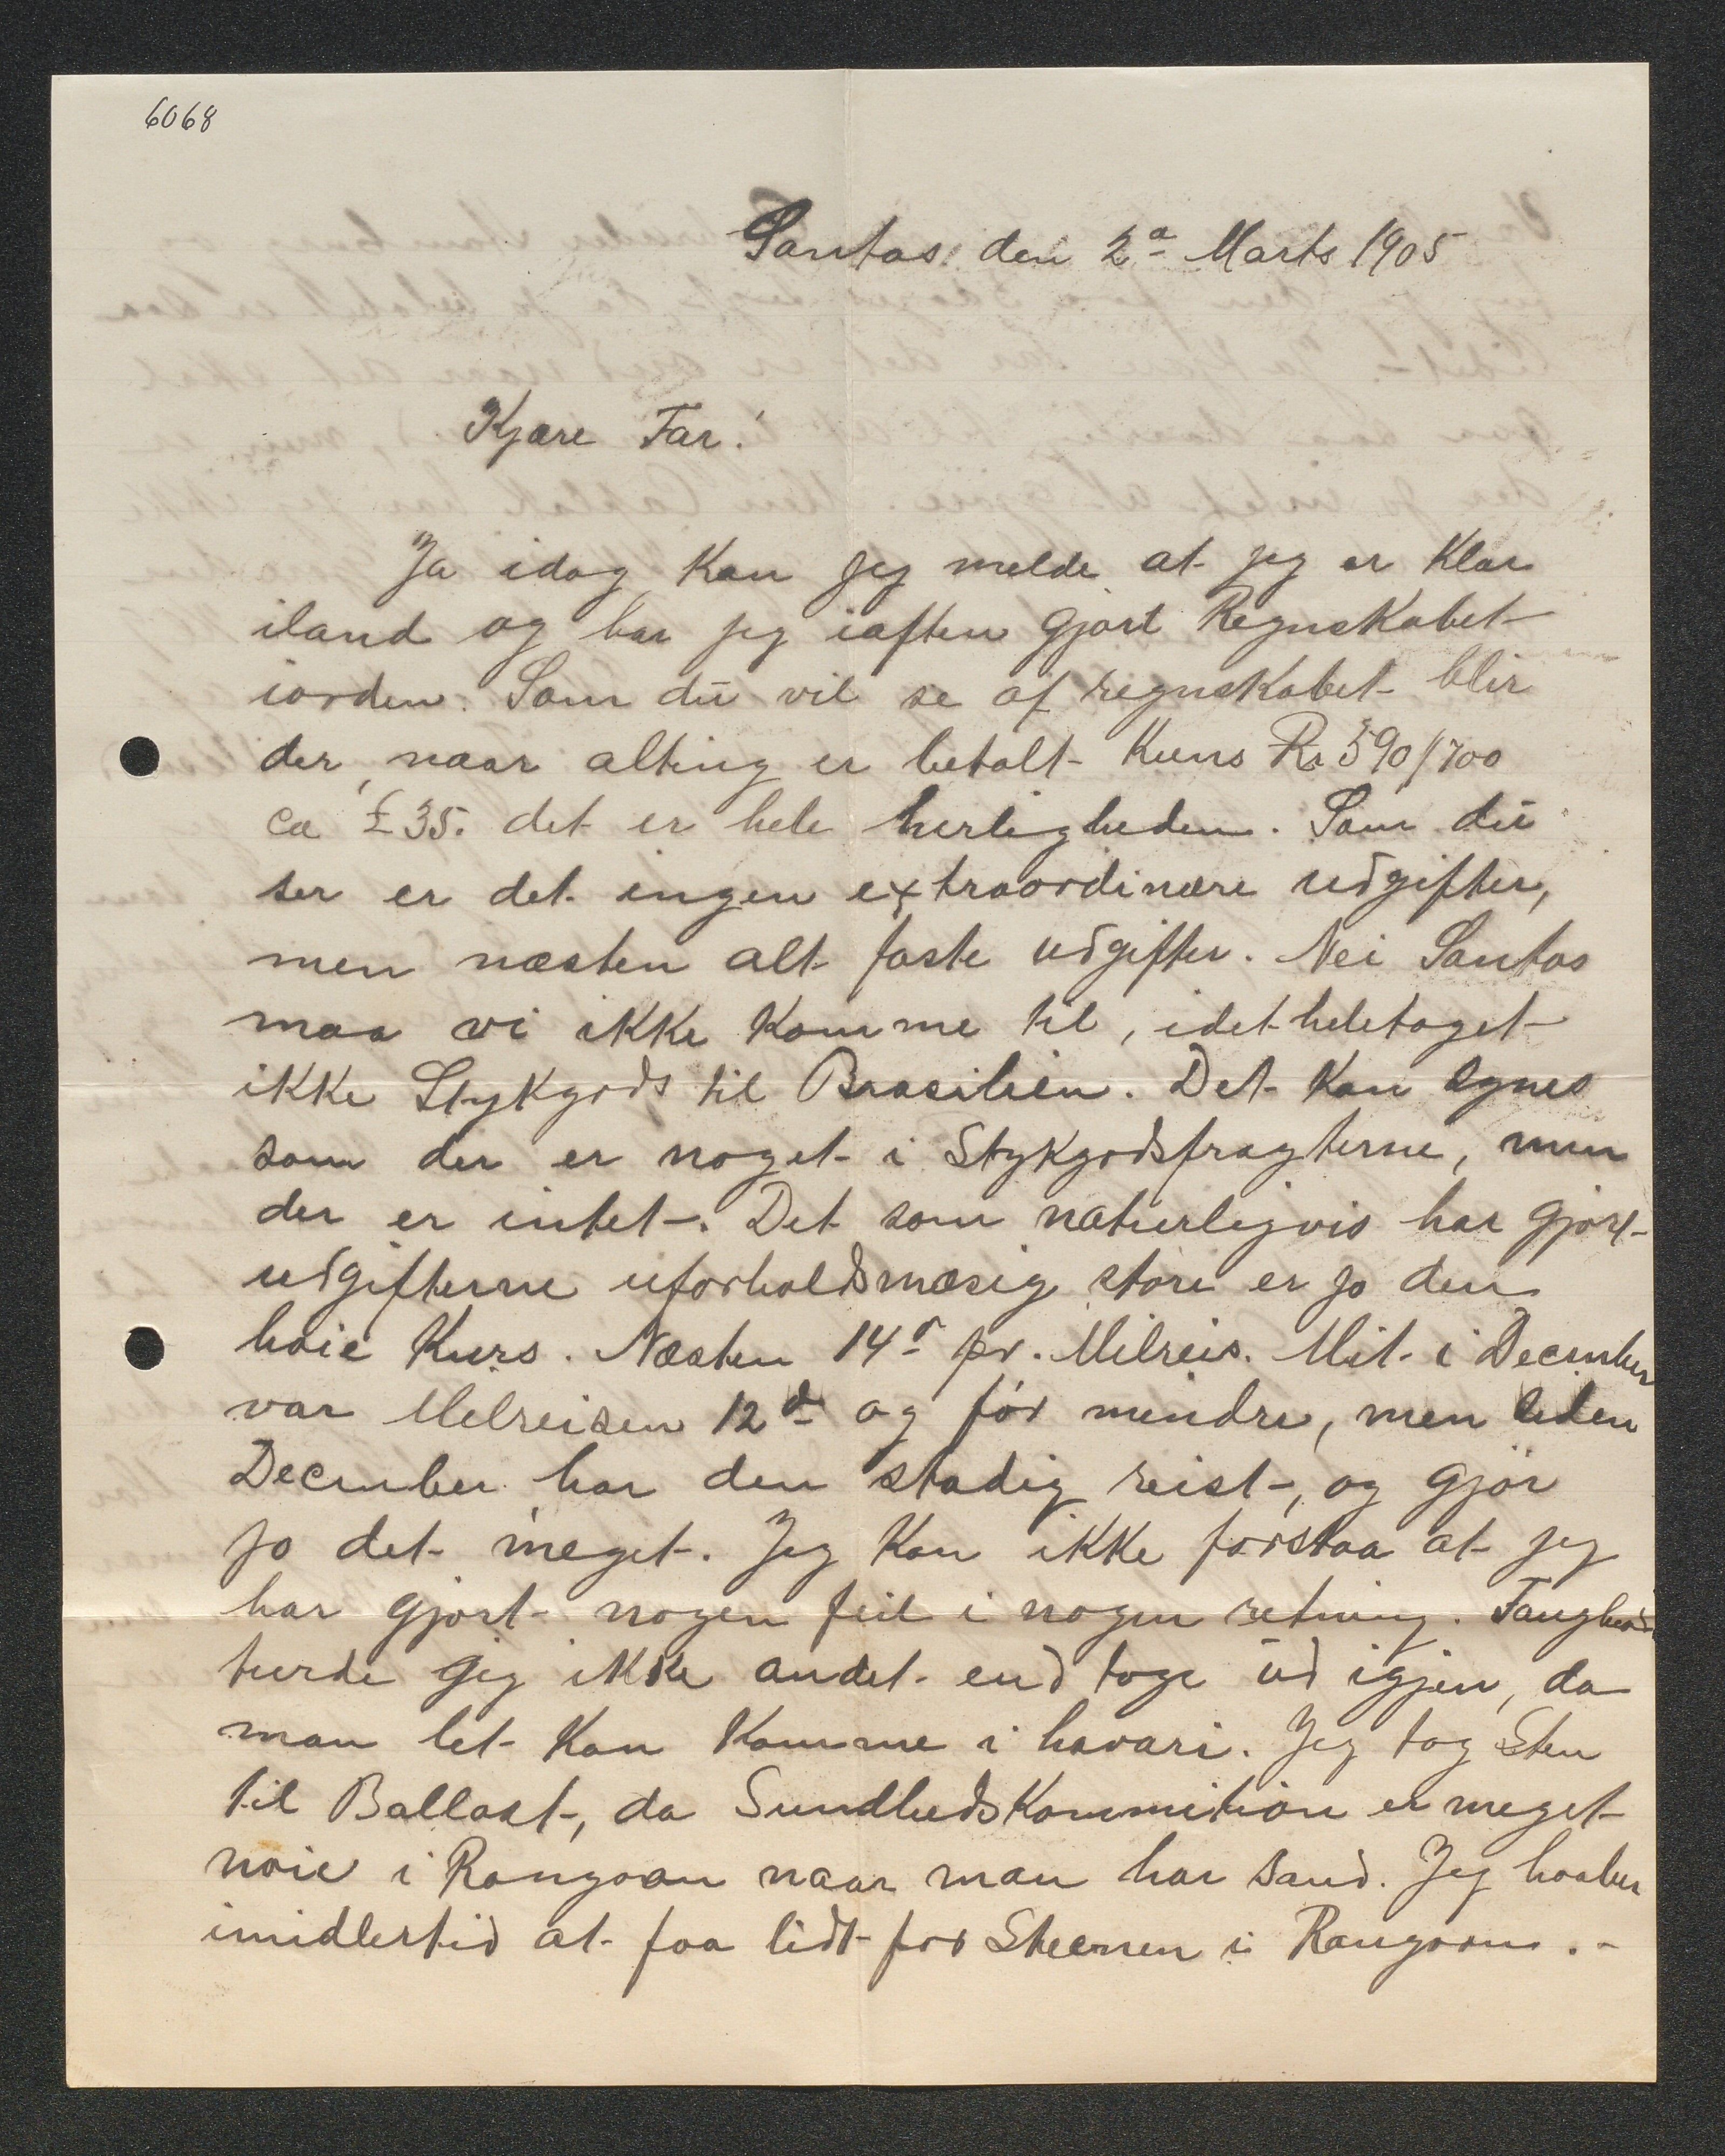 6068
Santos den 2a Marts 1905
Kjære Far!
Ja idag kan jeg melde at jeg er klar
iland og har jeg iaften gjort Regnskabet
iorden. Som du vil se af regnskabet blir
der, naar alting er betalt kuns Rs 590/700
ca £ 35. det er hele herligheden. Som du
ser er det ingen extraordinære udgifter,
men næsten alt faste udgifter. Nei Santos
maa vi ikke komme til, idet heletaget
ikke Stykgods til Brasilien. Det kan synes
som der er noget i Stykgodsfragterne, men
der er intet. Det som naturligvis har gjort
udgifterne uforholdsmæsig store er jo den
høie Kurs. Næsten 14d pr. Milreis. Mit i December
var Milreisen 12d og før mindre, men siden
December har den stadig reist, og gjør
jo det meget. Jeg kan ikke forstaa at jeg
har gjort nogen feil i nogen retning.
turde jeg ikke andet end tage ud igjen, da
man let kan komme i havari. Jeg tog Sten
til Ballast, da Sundhedskommition er meget
nøie i Rangoon naar man har Sand. Jeg haaber
imidlertid at faa lidt for Steenen i Rangoon. -